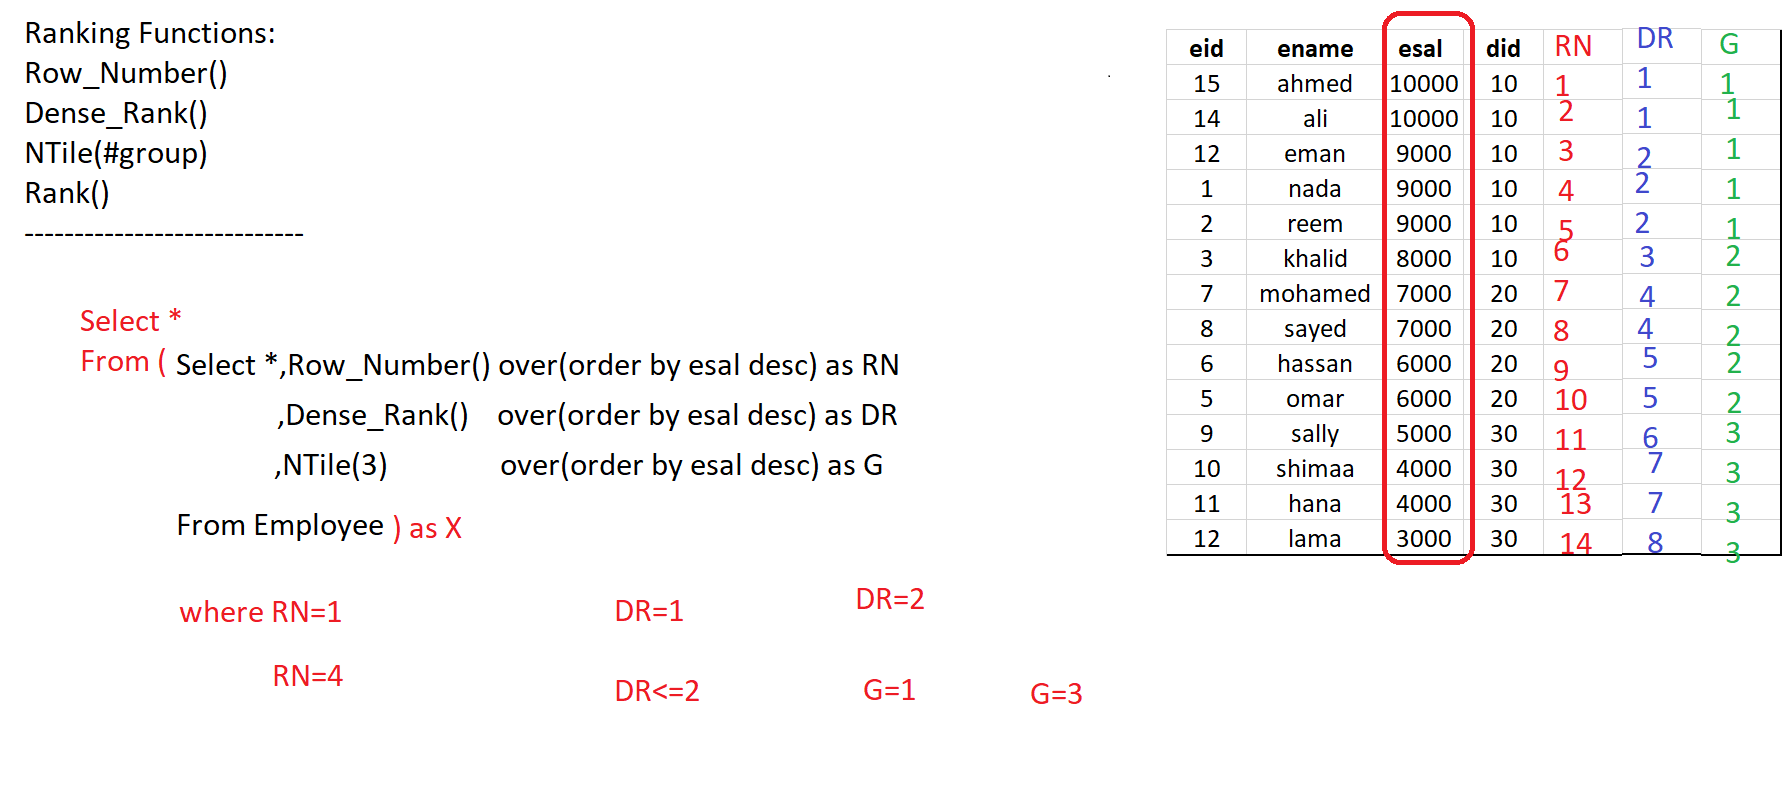 Ranking Functions:
Row_Number()
Dense_Rank()
NTile(#group)
Rank()
----------------------------
Select *
From ( Select *,Row_Number() over(order by esal desc) as RN
,Dense_Rank() over(order by esal desc) as DR
,NTile(3) over(order by esal desc) as G
From Employee ) as X
where RN=1 DR=1 DR=2
RN=4 DR<=2 G=1 G=3
eid ename esal did RN DR G
15 ahmed 10000 10 1 1 1
14 ali 10000 10 2 1 1
12 eman 9000 10 3 2 1
1 nada 9000 10 4 2 1
2 reem 9000 10 5 2 1
3 khalid 8000 10 6 3 2
7 mohamed 7000 20 7 4 2
8 sayed 7000 20 8 4 2
6 hassan 6000 20 9 5 2
5 omar 6000 20 10 5 2
9 sally 5000 30 11 6 3
10 shimaa 4000 30 12 7 3
11 hana 4000 30 13 7 3
12 lama 3000 30 14 8 3